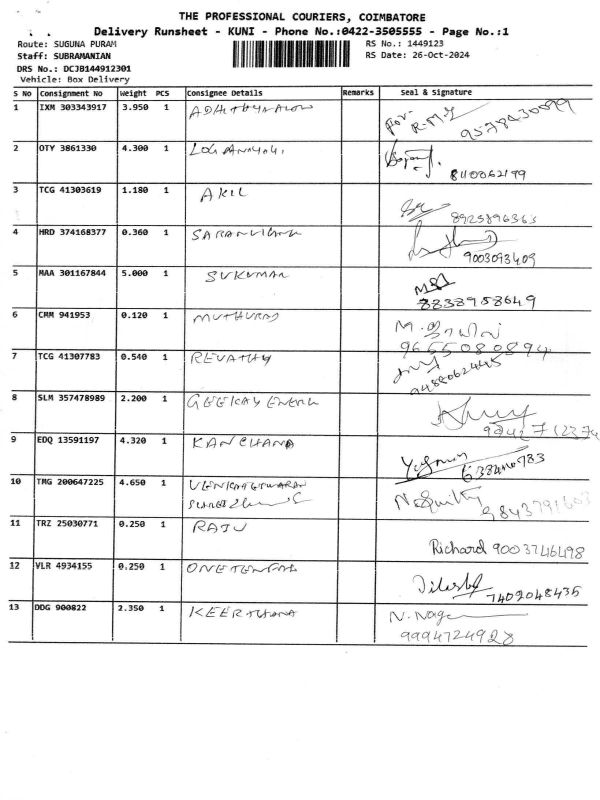 THE PROFESSIONAL COURIERS, COIMBATORE
Delivery Runsheet - KUNI - Phone No.:0422-3505555 - Page No.:1
Route: SUGUNA PURAM RS No.: 1449123
Staff: SUBRAMANIAN RS Date: 26-Oct-2024
DRS No.: DCJB144912301
Vehicle: Box Delivery
S No Consignment No Weight PCS Consignee Details Remarks Seal & Signature
1 IXM 303343917 3.950 1
for. R.M.Y
2 OTY 3861330 4.300 1
8110062199
3 TCG 41303619 1.180 1 AKIL
8925896363
4 HRD 374168377 0.360 1
9003093409
5 MAA 301167844 5.000 1 SUKUMAR
8838958649
6 CMM 941953 0.120 1 MUTHURAJ
9655080894
7 TCG 41307783 0.540 1 REVATHY
9488062445
8 SLM 357478989 2.200 1 GEEKAY
9 EDQ 13591197 4.320 1 KANCHANA
10 TMG 200647225 4.650 1 VENKATESWARAN
9843791603
11 TRZ 25030771 0.250 1 RAJU
Richard 9003746498
12 VLR 4934155 0.250 1
7402048435
13 DDG 900822 2.350 1 KEERTHANA
N. Naga
9994724928